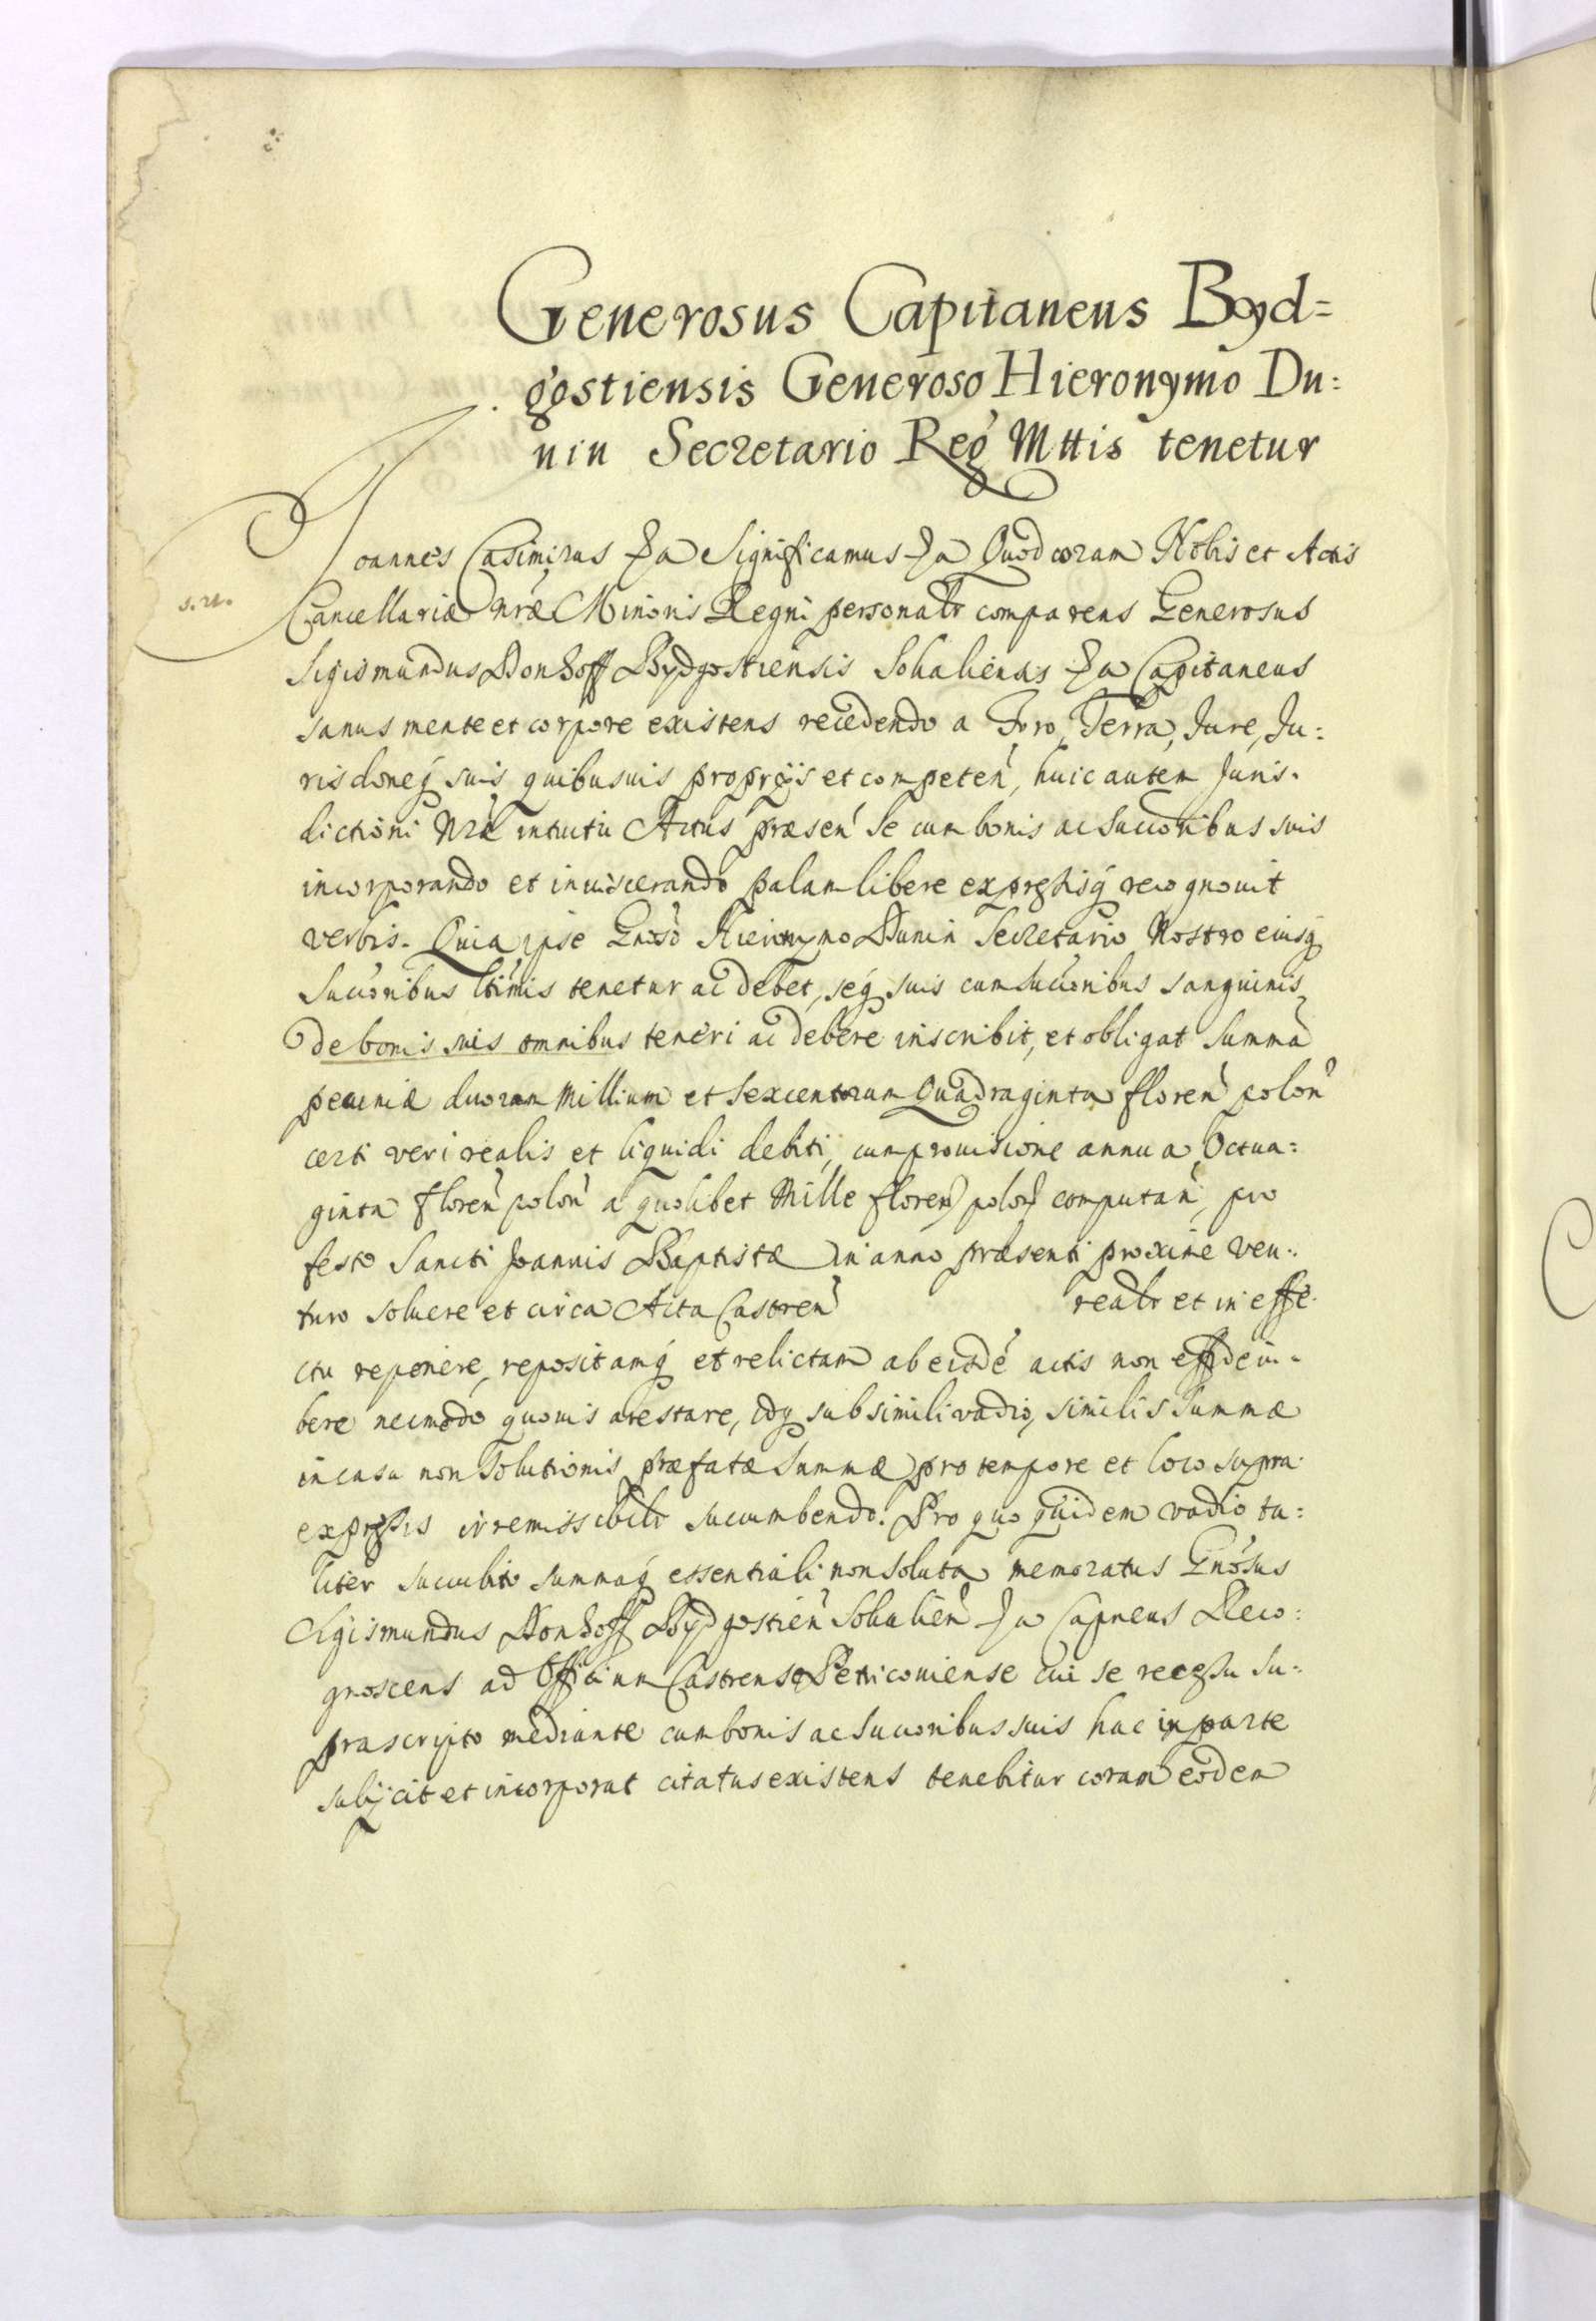 Generosus Capitaneus Byd=
gostiensis Generoso Hieronymo Du:
nin Secretario Reg Mttis tenetur
Joannes Casimirus Significamus Quod coram Nobis et Actis
Cancellariæ nræ Minoris Regni personalr comparens Generosus
Sigismundus Donhoff Bydgostiensis Sokaliensis Capitaneus
sanus mente et corpore existens recedendo a Foro, Terra, Jure, Ju:
risdoneq suis quibusuis proprijs et competen, huic autem Juris.
dictioni Nræ intuitu Actus præsen Se cum bonis ac succoribus suis
incorporando et inuiscerando palam libere expressisq recognouit
verbis. Quia ipse Gnoso Hieronymo Dunin Secretario Nostro eiusq
Succoribus ltimis tenetur ac debet, seq suis cum succoribus sanguinis
de bonis suis omnibus teneri ac debere inscribit, et obligat Summa
pecuniæ duorum Millium et Sexcentorum Quadraginta floren polon
certi veri realis et liquidi debiti, cum prouisione annua Octua=
ginta floren polon a quolibet Mille floren polon computan, pro
festo Sancti Joannis Baptistæ in anno præsenti proxime ven:
turo soluere et circa Acta Castren realr et in effe.
ctu reponere, repositamq et relictam ab eisde actis non
bere nec modo quouis arestare, idq sub simili vadio, similis Summæ
in casu non Solutionis præfatæ Summæ pro tempore et loco supra
expressis irremissibilr succumbendo. Pro quo quidem vadio ta:
liter succubito summaq essentiali non soluta memoratus Gnosus
Sigismundus Donhoff Bydgostien Sokalien Capneus Reco:
gnoscens ad Officium Castrense Petricouiense cui se recessu su:
prascripto mediante cum bonis ac succoribus suis hac in parte
subijcit et incorporat citatus existens tenebitur coram eodem